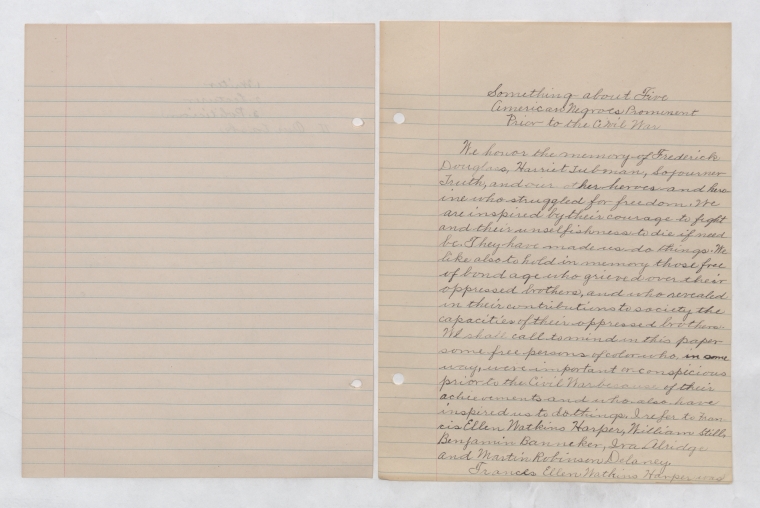 Something about Five
American Negroes Prominent
Prior to the Civil War
We honor the memory of Frederick
Douglass, Harriet Tubman, Sojourner
Truth, and our other heroes and hero
ine who struggled for freedom. We
are inspired by their courage to fight
and their unselfishness to die if need
be. They have made us do things. We
like also to hold in memory those free
of bond age who grieved over their
oppressed brothers, and who revealed
in their contributions to society the
capacities of their oppressed brothers.
We shall call to mind in this paper
some free persons of color who in some
way, were important or conspicuous
prior to the Civil War because of their
achievements and who also have
inspired us to do things. I refer to Fran
cis Ellen Watkins Harper, William Still,
Benjamin Banneker, Ira Alridge
and Martin Robinson Delaney
Frances Ellen Watkins Harper was